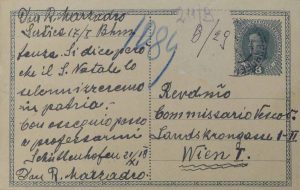 Don R. Marzadro
Sušice 17/I Böhm
fensa. Si dice però
che il S. Natale lo
solennizzeremo
in patria.
Con ossequio passo
a professarmi
Schüttenhofen 21/XI
Don R. Marzadro
1484
8/29
Revdmo
Commissario Vescov.
Landskrongasse 1-II
Wien I.